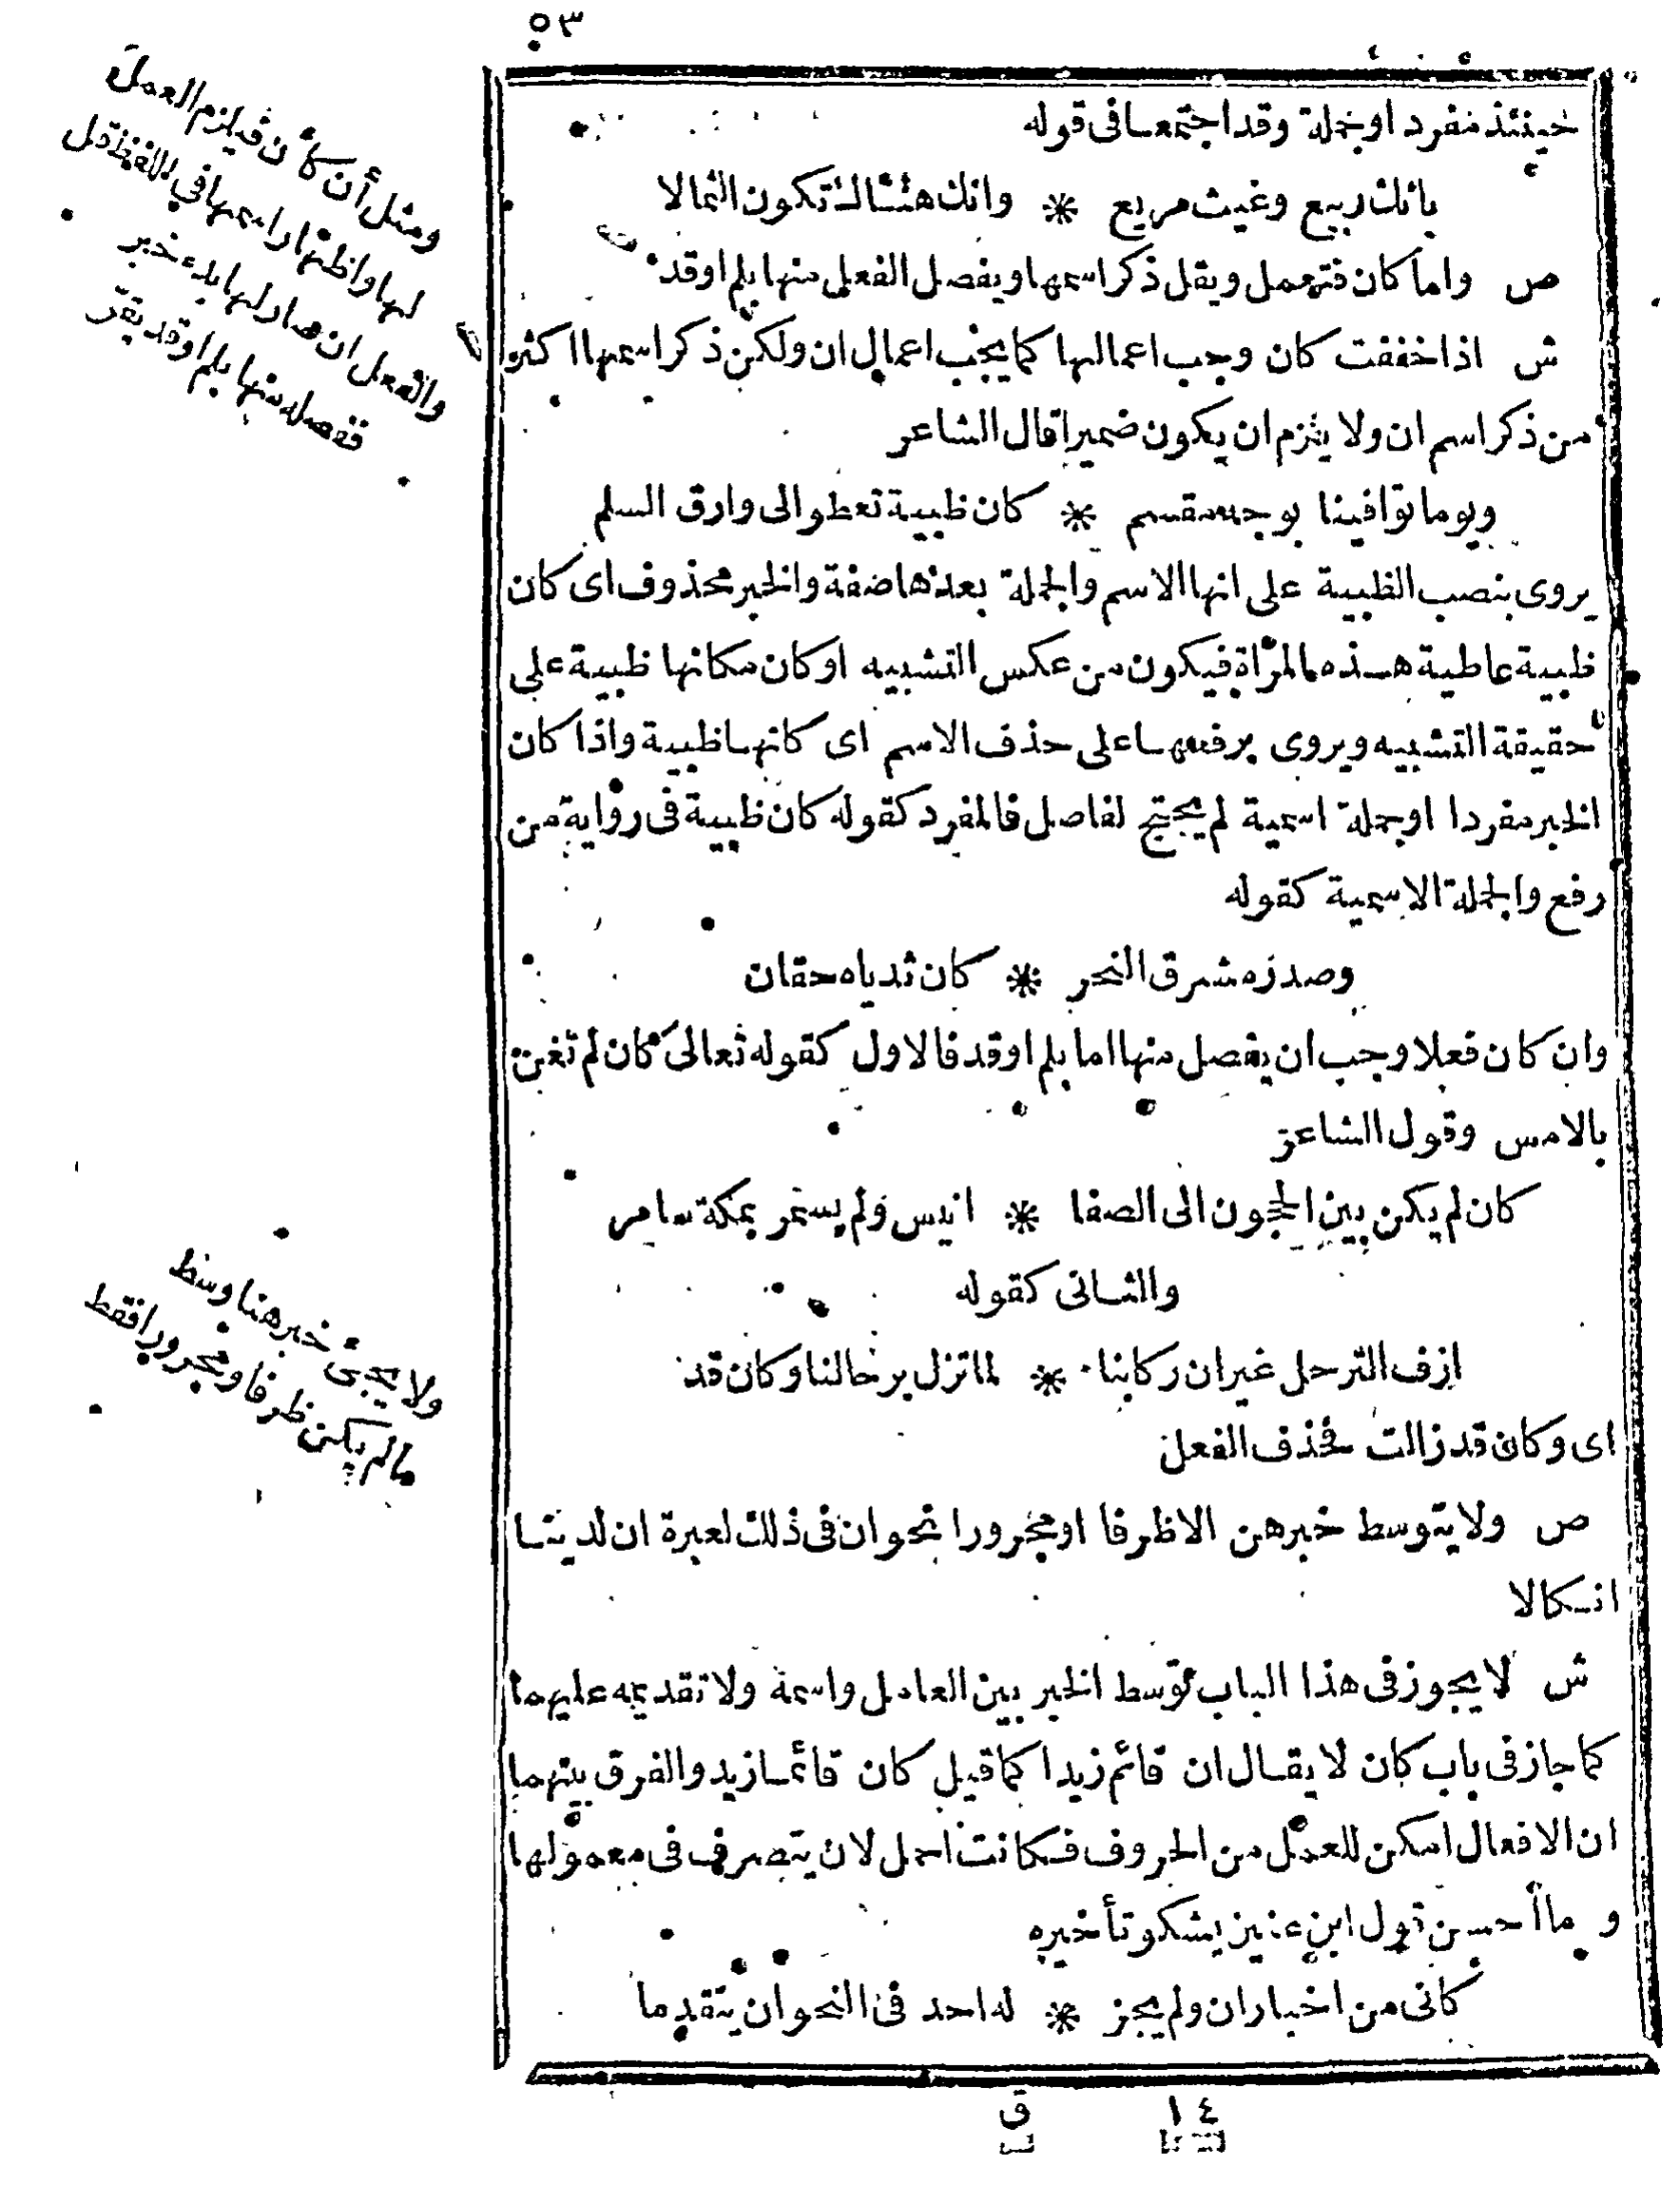 ٥٣
حينئذ مفرد او جملة وقد اجتمعا فى قوله
بانك ربيع وغيث مريع * وانك هناك تكون الثمالا
ص واما كان فتعمل ويقل ذكر اسمها ويفصل الفعل منها بلم او قد
ش اذا خففت كان وجب اعمالها كما يجب اعمال ان ولكن ذكر اسمها اكثر
من ذكر اسم ان ولا يلزم ان يكون ضميرا قال الشاعر
ويوما توافينا بوجه مقسم * كان ظبية تعطو الى وارق السلم
يروى بنصب الظبية على انها الاسم والجملة بعدها صفة والخبر محذوف اى كان
ظبية عاطية هذه المرأة فيكون من عكس التشبيه او كان مكانها ظبية على
حقيقة التشبيه ويروى برفعها على حذف الاسم اى كانها ظبية واذا كان
الخبر مفردا او جملة اسمية لم يحتج لفاصل فالمفرد كقوله كان ظبية فى رواية من
رفع والجملة الاسمية كقوله
وصدره مشرق النحر * كان ثدياه حقان
وان كان فعلا وجب ان يفصل منها اما بلم او قد فالاول كقوله تعالى كان لم تغن
بالامس وقول الشاعر
كان لم يكن بين الحجون الى الصفا * انيس ولم يسمر بمكة سامر
والثانى كقوله
ازف الترحل غير ان ركابنا * لما تزل برحالنا وكان قد
اى وكان قد زالت فحذف الفعل
ص ولا يتوسط خبرهن الا ظرفا او مجرورا نحو ان فى ذلك لعبرة ان لدينا
انكالا
ش لا يجوز فى هذا الباب توسط الخبر بين العامل واسمه ولا تقديمه عليهما
كما جاز فى باب كان لا يقال ان قائم زيدا كما قيل كان قائما زيد والفرق بينهما
ان الافعال امكن للعمل من الحروف فكانت احمل لان يتصرف فى معمولها
وما أحسن قول ابن عنيز يشكو تأخيره
كانى من اخبار ان ولم يجز * له احد فى النحو ان يتقدما
١٤ ق
ومثل أن كأن فيلزم العمل
لها واظهار اسمها في اللفظ قل
والفعل ان صار لها بدء خبر
ففصله منها بلم او قد يقرّ
ولا يجيئ خبر هنا وسط
ما لم يكن ظرفا ومجرورا فقط